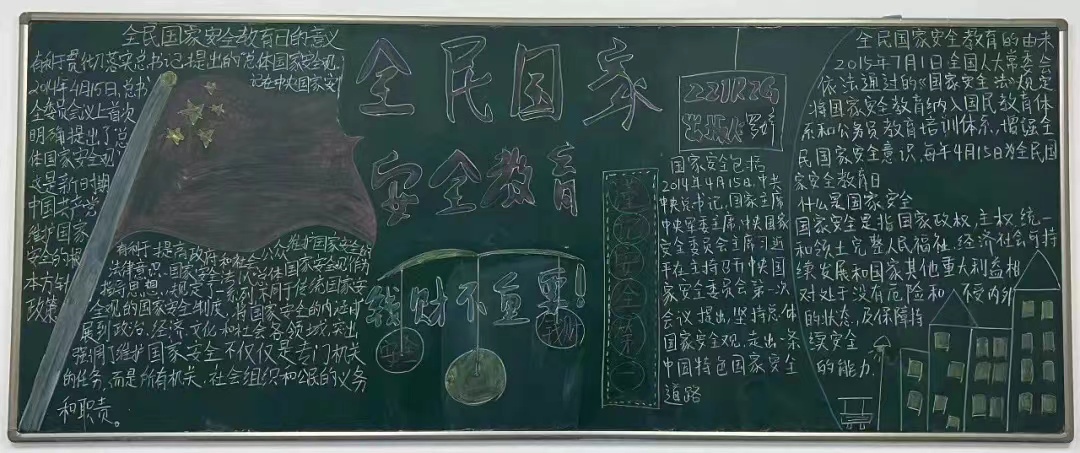 全民国家安全教育日的意义
有利于贯彻落实总书记提出的"总体国家安全观。
2014年4月15日,总书
记在中央国家安
全委员会议上首次
明确提出了"总
体国家安全观"
这是新时期
中国共产党
维护国家
安全的根
本方针
政策
有利于提高政府和社会公众维护国家安全的
法律意识,国家安全
总体国家安全观作为
指导思想,规定了一系列
用于传统国家安
全观的国家安全制度,将国家安全的内涵扩
展到政治、经济、文化和社会各领域突出
强调了维护国家安全不仅仅是专门机关
的任务,而是所有机关、社会组织和公民的义务
和职责。
全民国家
安全教育
钱财不
重!
安全
钱财
221RZG
出版人
国家安全包括
2014年4月15日,中共
中央总书记,国家主席
中央军委主席,中央国家
安全委员会主席习近
平在主持召开中央国
家安全委员会第一次
会议提出,坚持总体
国家安全观,走出一条
中国特色国家安全
道路
安全第一
全民国家安全教育的由来
2015年7月1日全国人大常委会
依法通过的《国家安全法》规定
将国家安全教育纳入国民教育体
系和公务员教育培训体系,增强全
民国家安全意识,每年4月15日为全民国
家安全教育日
什么是国家安全
国家安全是指国家政权,主权,统一
和领土完整人民福祉,经济社会可持
续发展和国家其他重大利益相
对处于没有危险和
不受内外
的状态,及保障持
续安全
的能力.